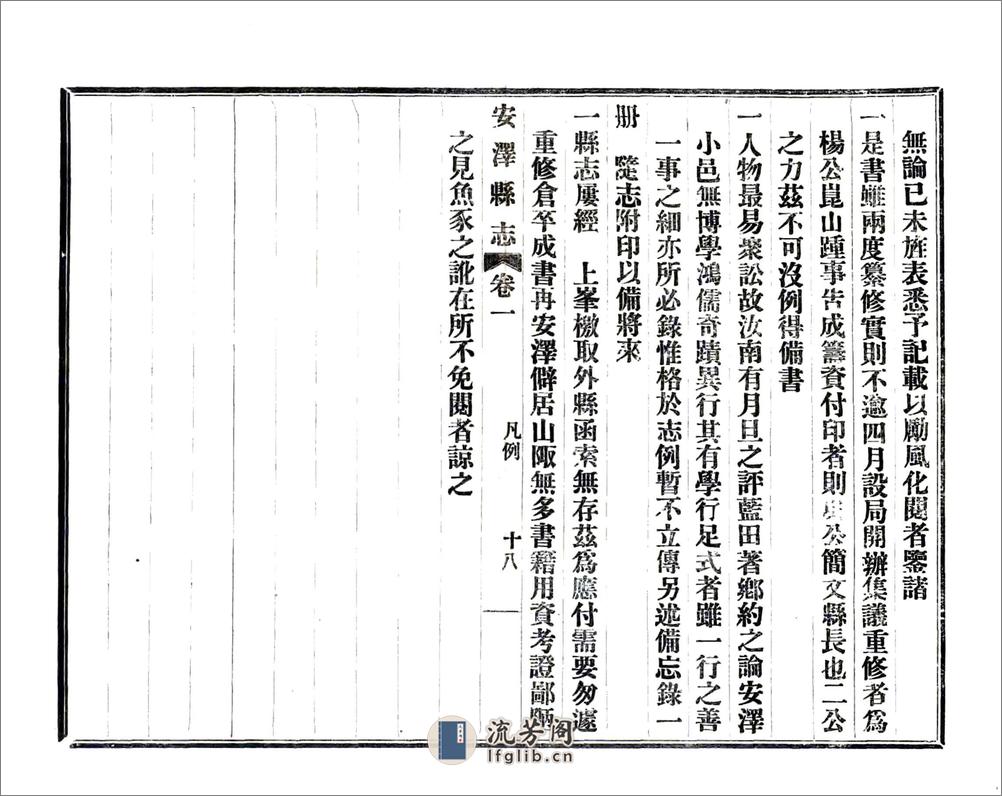 無論已未旌表悉予記載以勵風化閱者鑒諸
一是書雖兩度纂修實則不逾四月設局開辦集議重修者爲
楊公崑山踵事告成籌資付印者則公簡文縣長也二公
之力茲不可沒例得備書
一人物最易衆訟故汝南有月旦之評藍田著鄉約之論安澤
小邑無博學鴻儒奇蹟異行其有學行足式者雖一行之善
一事之細亦所必錄惟格於志例暫不立傳另述備忘錄一
册 隨志附印以備將來
一縣志屢經 上峯檄取外縣函索無存茲爲應付需要匆遽
重修倉卒成書再安澤僻居山陬無多書籍用資考證鄙陋
安澤縣志 卷一 凡例 十八
之見魚豕之訛在所不免閱者諒之
流芳阁
lfglib.cn